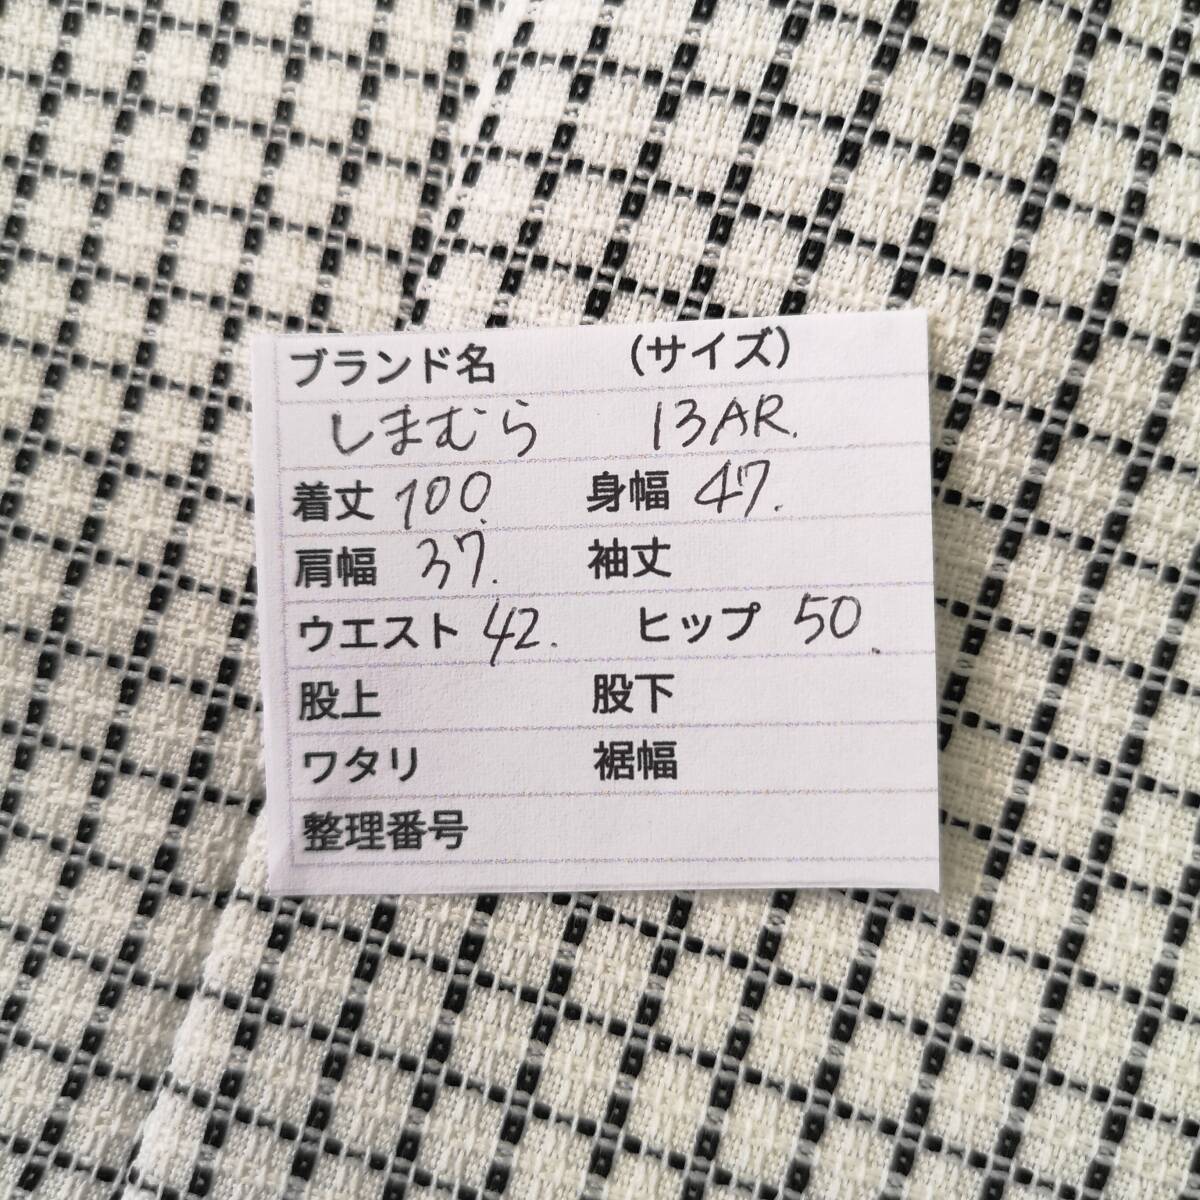 ブランド名 (サイズ)
しまむら 13AR.
着丈 100. 身幅 47.
肩幅 37. 袖丈
ウエスト 42. ヒップ 50.
股上 股下
ワタリ 裾幅
整理番号